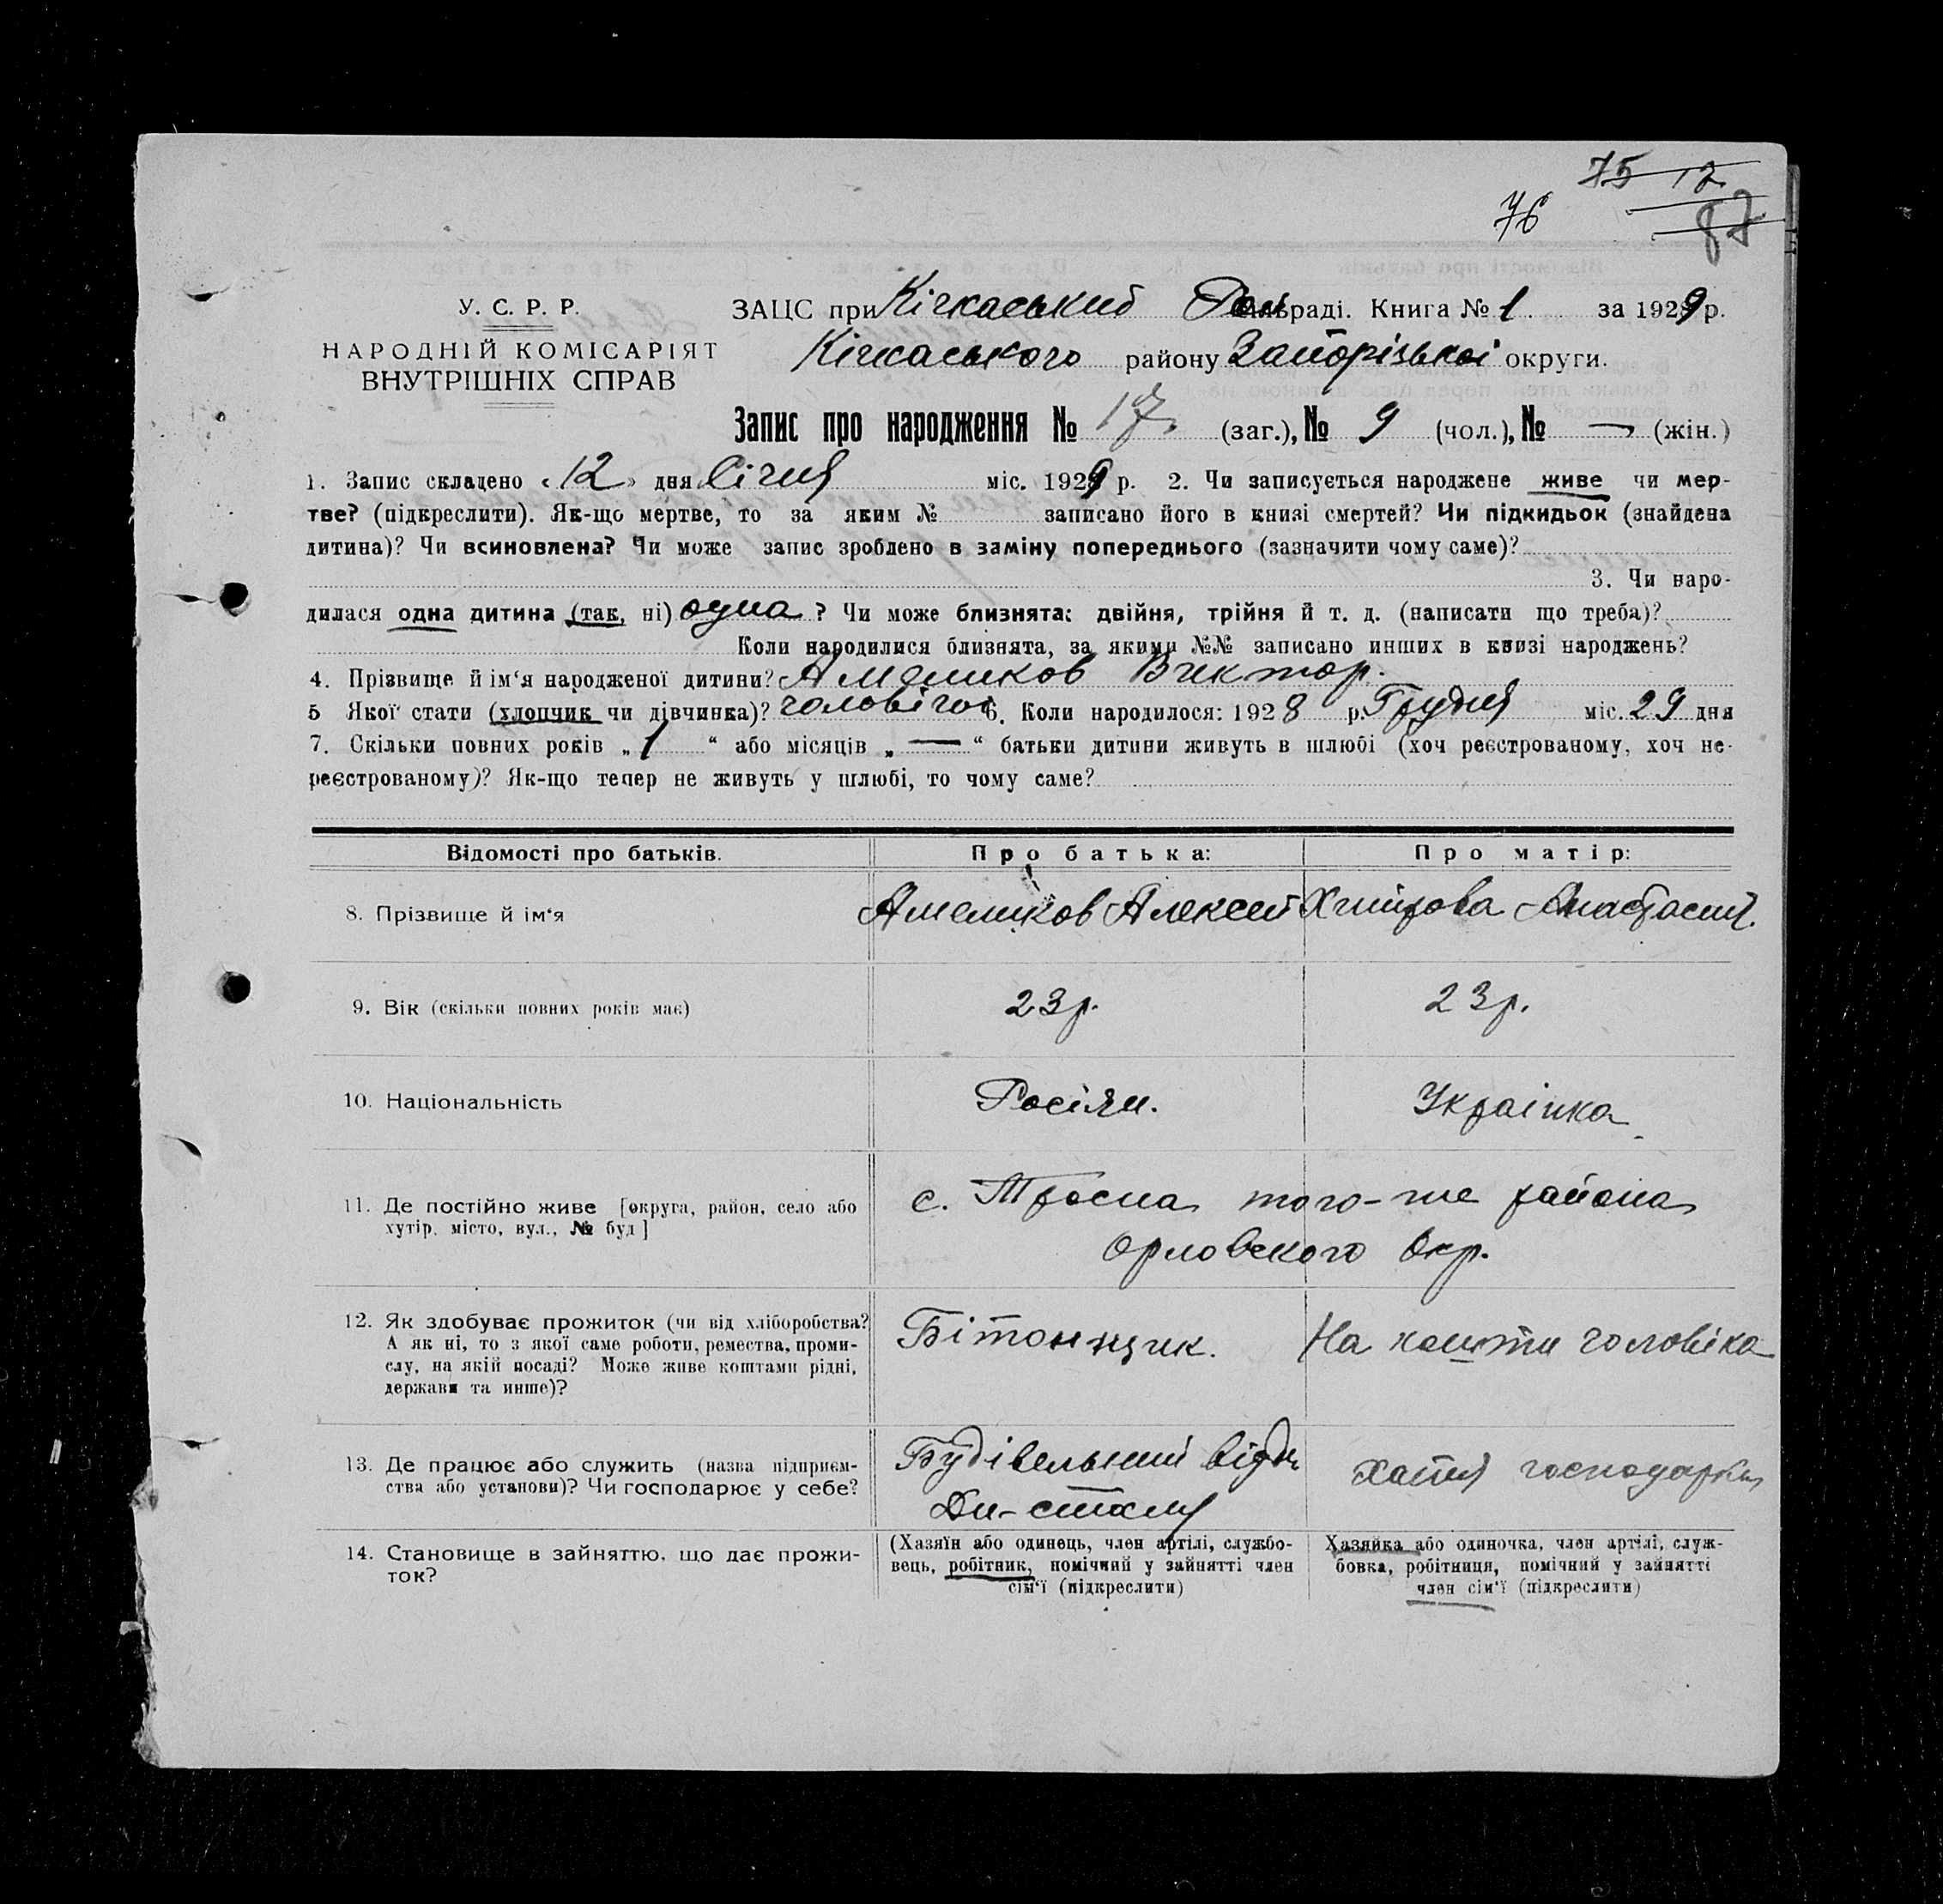 75 12
76 87
У. С. Р. Р.
НАРОДНІЙ КОМІСАРІЯТ
ВНУТРІШНІХ СПРАВ
ЗАЦС при Кічкаський раді. Книга № 1 за 1929 р.
Кічкаського району Запорізькоі округи.
Запис про народження № 17 (заг.), № 9 (чол.), № — (жін.)
1. Запис складено «12» дня Січня міс. 1929 р. 2. Чи записується народжене живе чи мер-
тве? (підкреслити). Як-що мертве, то за яким № записано його в книзі смертей? Чи підкидьок (знайдена
дитина)? Чи всиновлена? Чи може запис зроблено в заміну попереднього (зазначити чому саме)?
3. Чи наро-
дилася одна дитина (так, ні) одна ? Чи може близнята: двійня, трійня й т. д. (написати що треба)?
Коли народилися близнята, за якими №№ записано инших в книзі народжень?
4. Прізвище й ім'я народженої дитини? Амеликов Виктор.
5 Якої статі (хлопчик чи дівчинка)? чоловічоі 6. Коли народилось: 1928 р. Грудня міс. 29 дня
7. Скільки повних років „ 1 “ або місяців „ — “ батьки дитини живуть в шлюбі (хоч реєстрованому, хоч не-
реєстрованому)? Як-що тепер не живуть у шлюбі, то чому саме?
Відомості про батьків. Про батька: Про матір:
8. Прізвище й ім'я Амеликов Алексей Анастасия.
9. Вік (скільки повних років має) 23 р. 23 р.
10. Національність Росіян. Украінка
11. Де постійно живе [округа, район, село або
хутір, місто, вул., № буд]
с. Тросна того-же района
Орловского Окр.
12. Як здобуває прожиток (чи від хліборобства?
А як ні, то з якої саме роботи, ремества, проми-
слу, на якій посаді? Може живе коштами рідні,
держави та инше)?
Бітонщик. На кошти чоловіка
13. Де працює або служить (назва підприєм-
ства або установи)? Чи господарює у себе?
Будівельний відд.
Хатня господарка
14. Становище в зайняттю, що дає прожи-
ток?
(Хазяїн або одинець, член артілі, службо-
вець, робітник, помічний у зайнятті член
сім'ї (підкреслити)
Хазяйка або одиночка, член артілі, служ-
бовка, робітниця, помічний у зайнятті
член сім'ї (підкреслити)